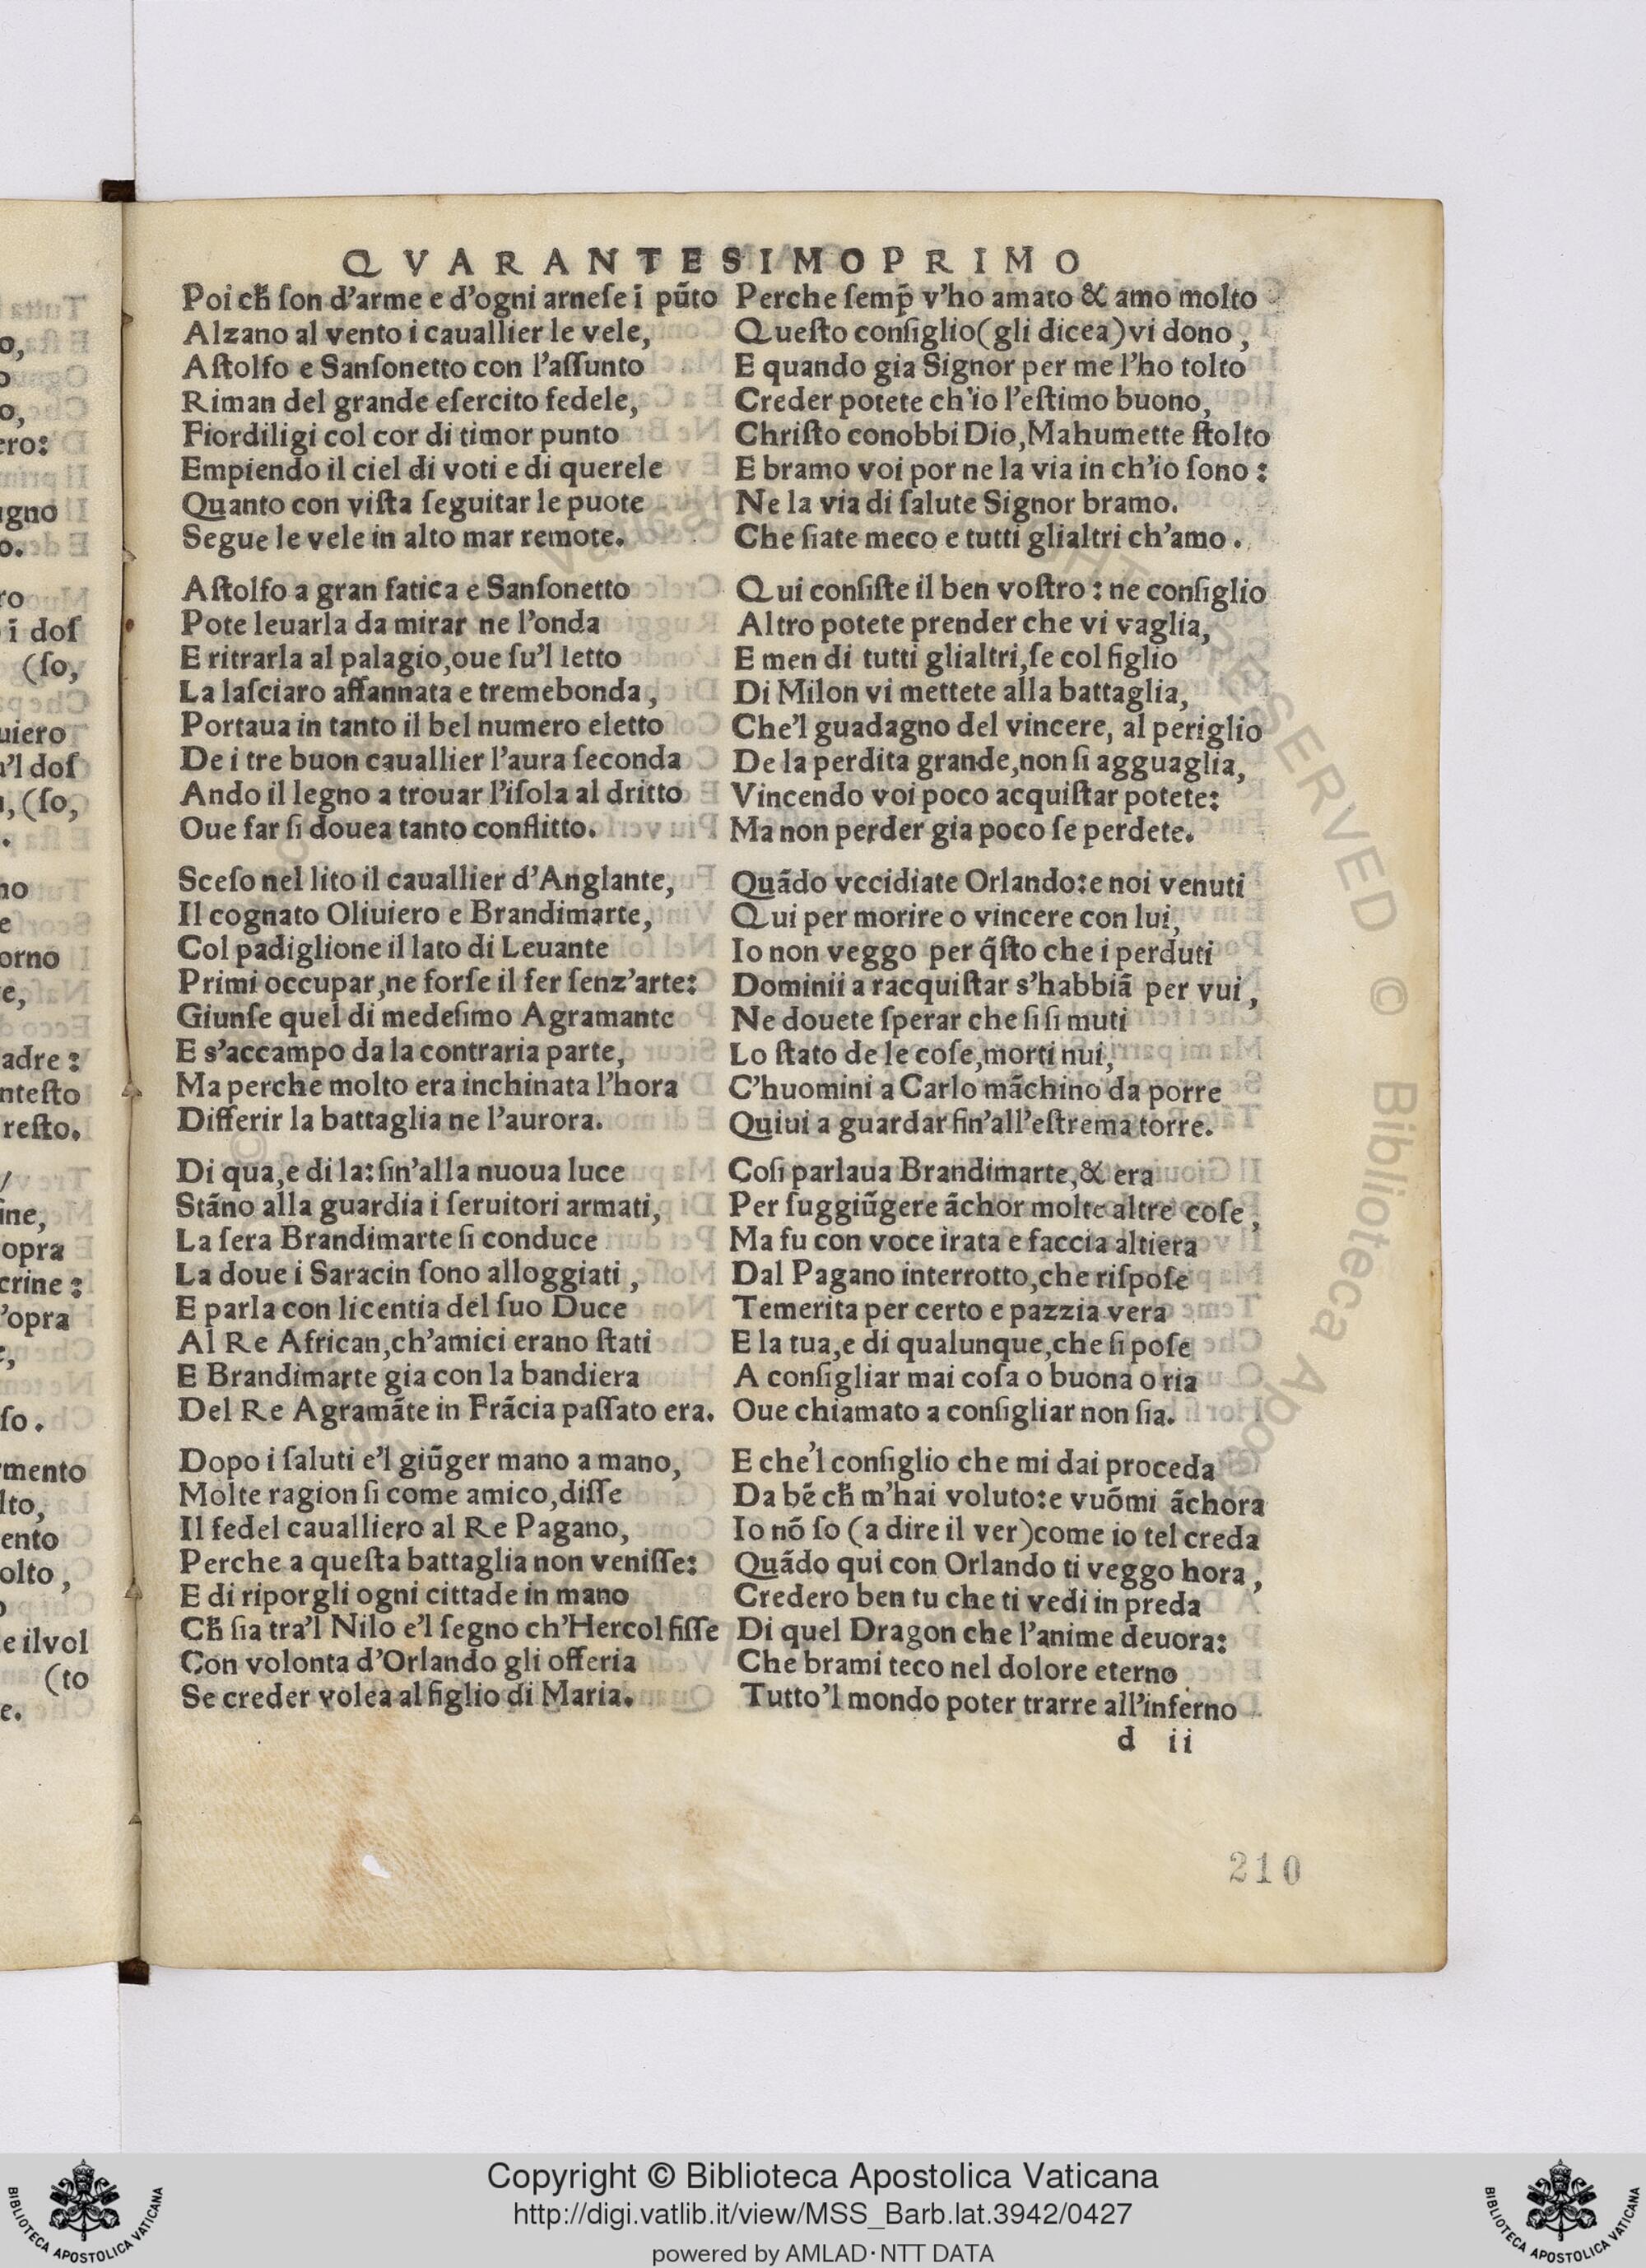 QVARANTESIMOPRIMO
Poi ch̃ ſon d'arme e d'ogni arneſe ĩ pũto
Alzano al vento i cauallier le vele,
Aſtolfo e Sanſonetto con l'aſſunto
Riman del grande eſercito fedele,
Fiordiligi col cor di timor punto
Empiendo il ciel di voti e di querele
Quanto con viſta ſeguitar le puote
Segue le vele in alto mar remote.
Aſtolfo a gran fatica e Sanſonetto
Pote leuarla da mirar ne l'onda
E ritrarla al palagio,oue ſu'l letto
La laſciaro affannata e tremebonda,
Portaua in tanto il bel numero eletto
De i tre buon cauallier l'aura ſeconda
Ando il legno a trouar l'iſola al dritto
Oue far ſi douea tanto conflitto.
Sceſo nel lito il cauallier d'Anglante,
Il cognato Oliuiero e Brandimarte,
Col padiglione il lato di Leuante
Primi occupar,ne forſe il fer ſenz'arte:
Giunſe quel di medeſimo Agramante
E s'accampo da la contraria parte,
Ma perche molto era inchinata l'hora
Differir la battaglia ne l'aurora.
Di qua,e di la:ſin'alla nuoua luce
Stãno alla guardia i ſeruitori armati,
La ſera Brandimarte ſi conduce
La doue i Saracin ſono alloggiati,
E parla con licentia del ſuo Duce
Al Re African,ch'amici erano ſtati
E Brandimarte gia con la bandiera
Del Re Agramãte in Frãcia paſſato era.
Dopo i ſaluti e'l giũger mano a mano,
Molte ragion ſi come amico,diſſe
Il fedel caualliero al Re Pagano,
Perche a queſta battaglia non veniſſe:
E di riporgli ogni cittade in mano
Ch̃ ſia tra'l Nilo e'l ſegno ch'Hercol fiſſe
Con volonta d'Orlando gli offeria
Se creder volea al figlio di Maria.
Perche ſemp̃ v'ho amato & amo molto
Queſto conſiglio(gli dicea)vi dono,
E quando gia Signor per me l'ho tolto
Creder potete ch'io l'eſtimo buono,
Chriſto conobbi Dio,Mahumette ſtolto
E bramo voi por ne la via in ch'io ſono:
Ne la via di ſalute Signor bramo.
Che ſiate meco e tutti glialtri ch'amo.
Qui conſiſte il ben voſtro: ne conſiglio
Altro potete prender che vi vaglia,
E men di tutti glialtri,ſe col figlio
Di Milon vi mettete alla battaglia,
Che'l guadagno del vincere, al periglio
De la perdita grande,non ſi agguaglia,
Vincendo voi poco acquiſtar potete:
Ma non perder gia poco ſe perdete.
Quãdo vccidiate Orlando:e noi venuti
Qui per morire o vincere con lui,
Io non veggo per q̃ſto che i perduti
Dominii a racquiſtar s'habbiã per vui,
Ne douete ſperar che ſi ſi muti
Lo ſtato de le coſe,morti nui,
C'huomini a Carlo mãchino da porre
Quiui a guardar fin'all'eſtrema torre.
Coſi parlaua Brandimarte,& era
Per ſuggiũgere ãchor molte altre coſe,
Ma fu con voce irata e faccia altiera
Dal Pagano interrotto,che riſpoſe
Temerita per certo e pazzia vera
E la tua,e di qualunque,che ſi poſe
A conſigliar mai coſa o buona o ria
Oue chiamato a conſigliar non ſia.
E che'l conſiglio che mi dai proceda
Da bẽ ch̃ m'hai voluto:e vuõmi ãchora
Io nõ ſo (a dire il ver)come io tel creda
Quãdo qui con Orlando ti veggo hora,
Credero ben tu che ti vedi in preda
Di quel Dragon che l'anime deuora:
Che brami teco nel dolore eterno
Tutto'l mondo poter trarre all'inferno
d ii
210
Copyright © Biblioteca Apostolica Vaticana
http://digi.vatlib.it/view/MSS_Barb.lat.3942/0427
powered by AMLAD·NTT DATA
BIBLIOTECA APOSTOLICA VATICANA
BIBLIOTECA APOSTOLICA VATICANA